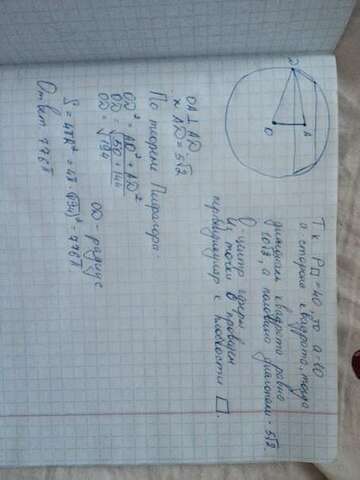 Т.к. P□ = 40, то a = 10
a сторона квадрата, тогда
диагональ квадрата равна
10√2, а половина диагонали = 5√2.
O - центр сферы
Из точки O проведем
перпендикуляр к плоскости □.
D
A
O
OA ⊥ AD
AD = 5√2
По теореме Пифагора:
OD² = AO² + AD²
OD = √50 + 144
OD = √194
OD - радиус
S = 4πR² = 4π · (√194)² = 776π
Ответ: 776π